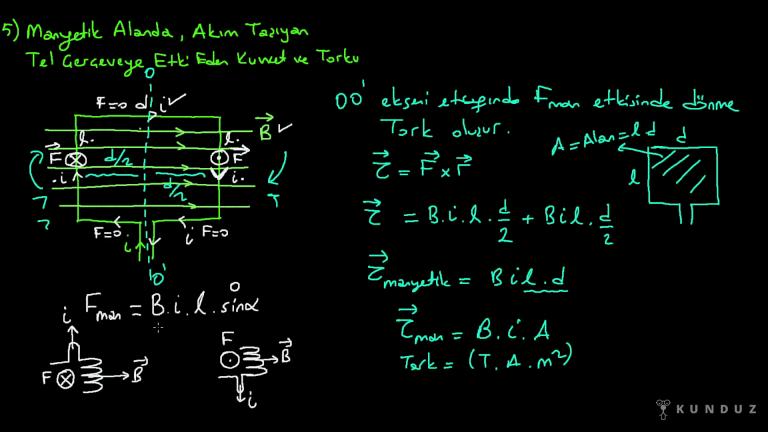 5) Manyetik Alanda, Akım Taşıyan
Tel Çerçeveye Etki Eden Kuvvet ve Torku
O
F=0 d i
B
l. l.
F d/2 F
.i i.
d/2
τ τ
F=0 i F=0
i
O'
Fman = B.i.l.sinα
0
i
F B
F
B
i
OO' ekseni etrafında Fman etkisinde dönme
Tork oluşur.
A = Alan = l.d
d
l
τ = F x r
τ = B.i.l.d/2 + Bil.d/2
τmanyetik = Bil.d
τman = B.i.A
Tork = (T.A.m²)
KUNDUZ